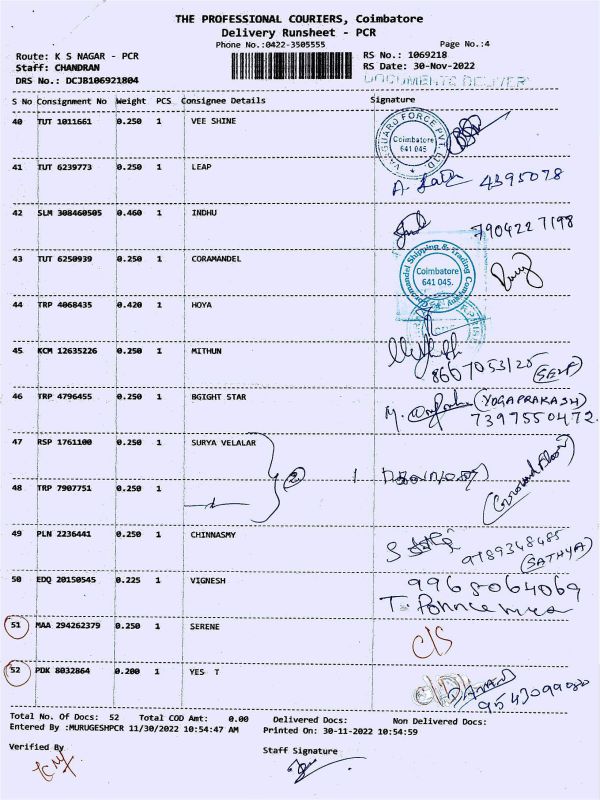 THE PROFESSIONAL COURIERS, Coimbatore
Delivery Runsheet - PCR
Phone No.:0422-3505555 Page No.:4
Route: K S NAGAR - PCR RS No.: 1069218
Staff: CHANDRAN RS Date: 30-Nov-2022
DRS No.: DCJB106921804 DOCUMENTS DELIVER
S No Consignment No Weight PCS Consignee Details Signature
40 TUT 1011661 0.250 1 VEE SHINE
VANGUARD FORCE PVT. LTD. Coimbatore 641 045
41 TUT 6239773 0.250 1 LEAP 4395078
42 SLM 308460505 0.460 1 INDHU 7904227198
43 TUT 6250939 0.250 1 CORAMANDEL
Coromandel Shipping & Trading Company Coimbatore 641 045.
44 TRP 4068435 0.420 1 HOYA
45 KCM 12635226 0.250 1 MITHUN
8667053125 (SELF)
46 TRP 4796455 0.250 1 BGIGHT STAR (YOGAPRAKASH)
7397550472.
47 RSP 1761100 0.250 1 SURYA VELALAR 2
(Ground Floor)
48 TRP 7907751 0.250 1
49 PLN 2236441 0.250 1 CHINNASMY
9789348485
(SATHYA)
50 EDQ 20150545 0.225 1 VIGNESH 9965064069
51 MAA 294262379 0.250 1 SERENE C/S
52 PDK 8032864 0.200 1 YES T
Total No. Of Docs: 52 Total COD Amt: 0.00 Delivered Docs: Non Delivered Docs:
Entered By :MURUGESHPCR 11/30/2022 10:54:47 AM Printed On: 30-11-2022 10:54:59
Verified By Staff Signature